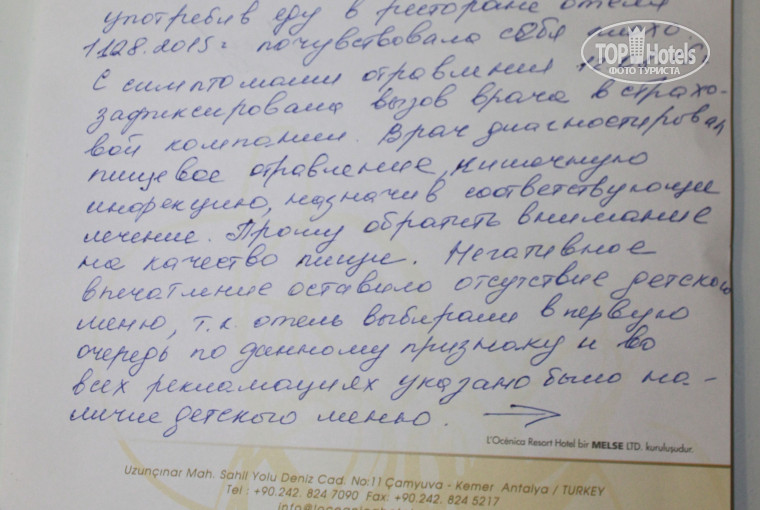 употребив еду в ресторане отеля
11.28.2015г почувствовала себя плохо.
С симптомами отравления
зафиксировала вызов врача в страхо-
вой компании. Врач диагностировал
пищевое отравление, кишечную
инфекцию, назначив соответствующее
лечение. Прошу обратить внимание
на качество пищи. Негативное
впечатление оставило отсутствие детского
меню, т.к. отель выбирали в первую
очередь по данному признаку и во
всех рекламациях указано было на-
личие детского меню.
TOPHotels
ФОТО ТУРИСТА
L'Océnica Resort Hotel bir MELSE LTD. kuruluşudur.
Uzunçınar Mah. Sahil Yolu Deniz Cad. No:11 Çamyuva - Kemer Antalya / TURKEY
Tel : +90.242. 824 7090 Fax: +90.242. 824 5217